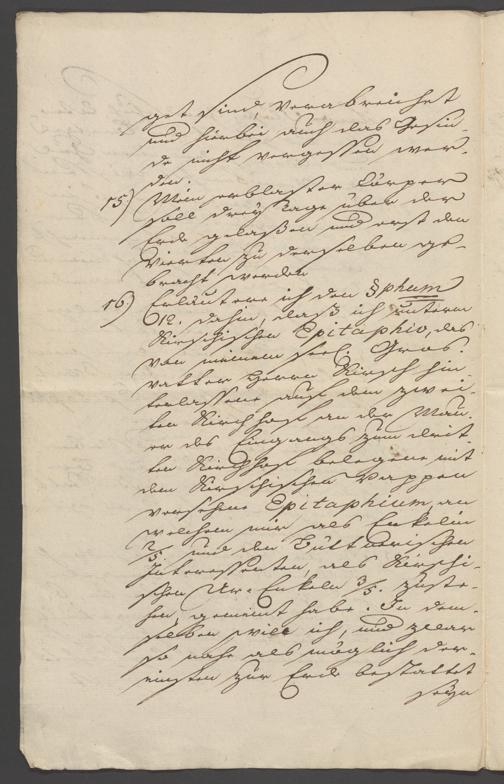 get sind, verabreichet
und hierbei auch das Gesin-
de nicht vergessen wer-
den.
15) Mein erblaßter Körper
soll drey Tage über der
Erde gelaßen und erst den
vierten zu derselben ge-
bracht werden
16) Erläutere ich den §phum
12. dahin, daß ich unterm
Kirschischen Epitaphio, das
von meinem seel. Gros-
vatter Herrn Kirsch hin-
terlassene auf dem zwei-
ten Kirchhof an der Mau-
er des Eingangs zum drit-
ten Kirchhof belegene mit
dem Kirschischen Wappen
versehene Epitaphium, an
welchem mir als Enkelin
2/5. und den Büttnerischen
Interessenten, als Kirschi-
schen Ur-Enkeln 3/5. zuste-
hen, gemeint habe. In dem-
selben will ich, und zwar
so nahe als möglich der-
einsten zur Erde bestattet
seyn